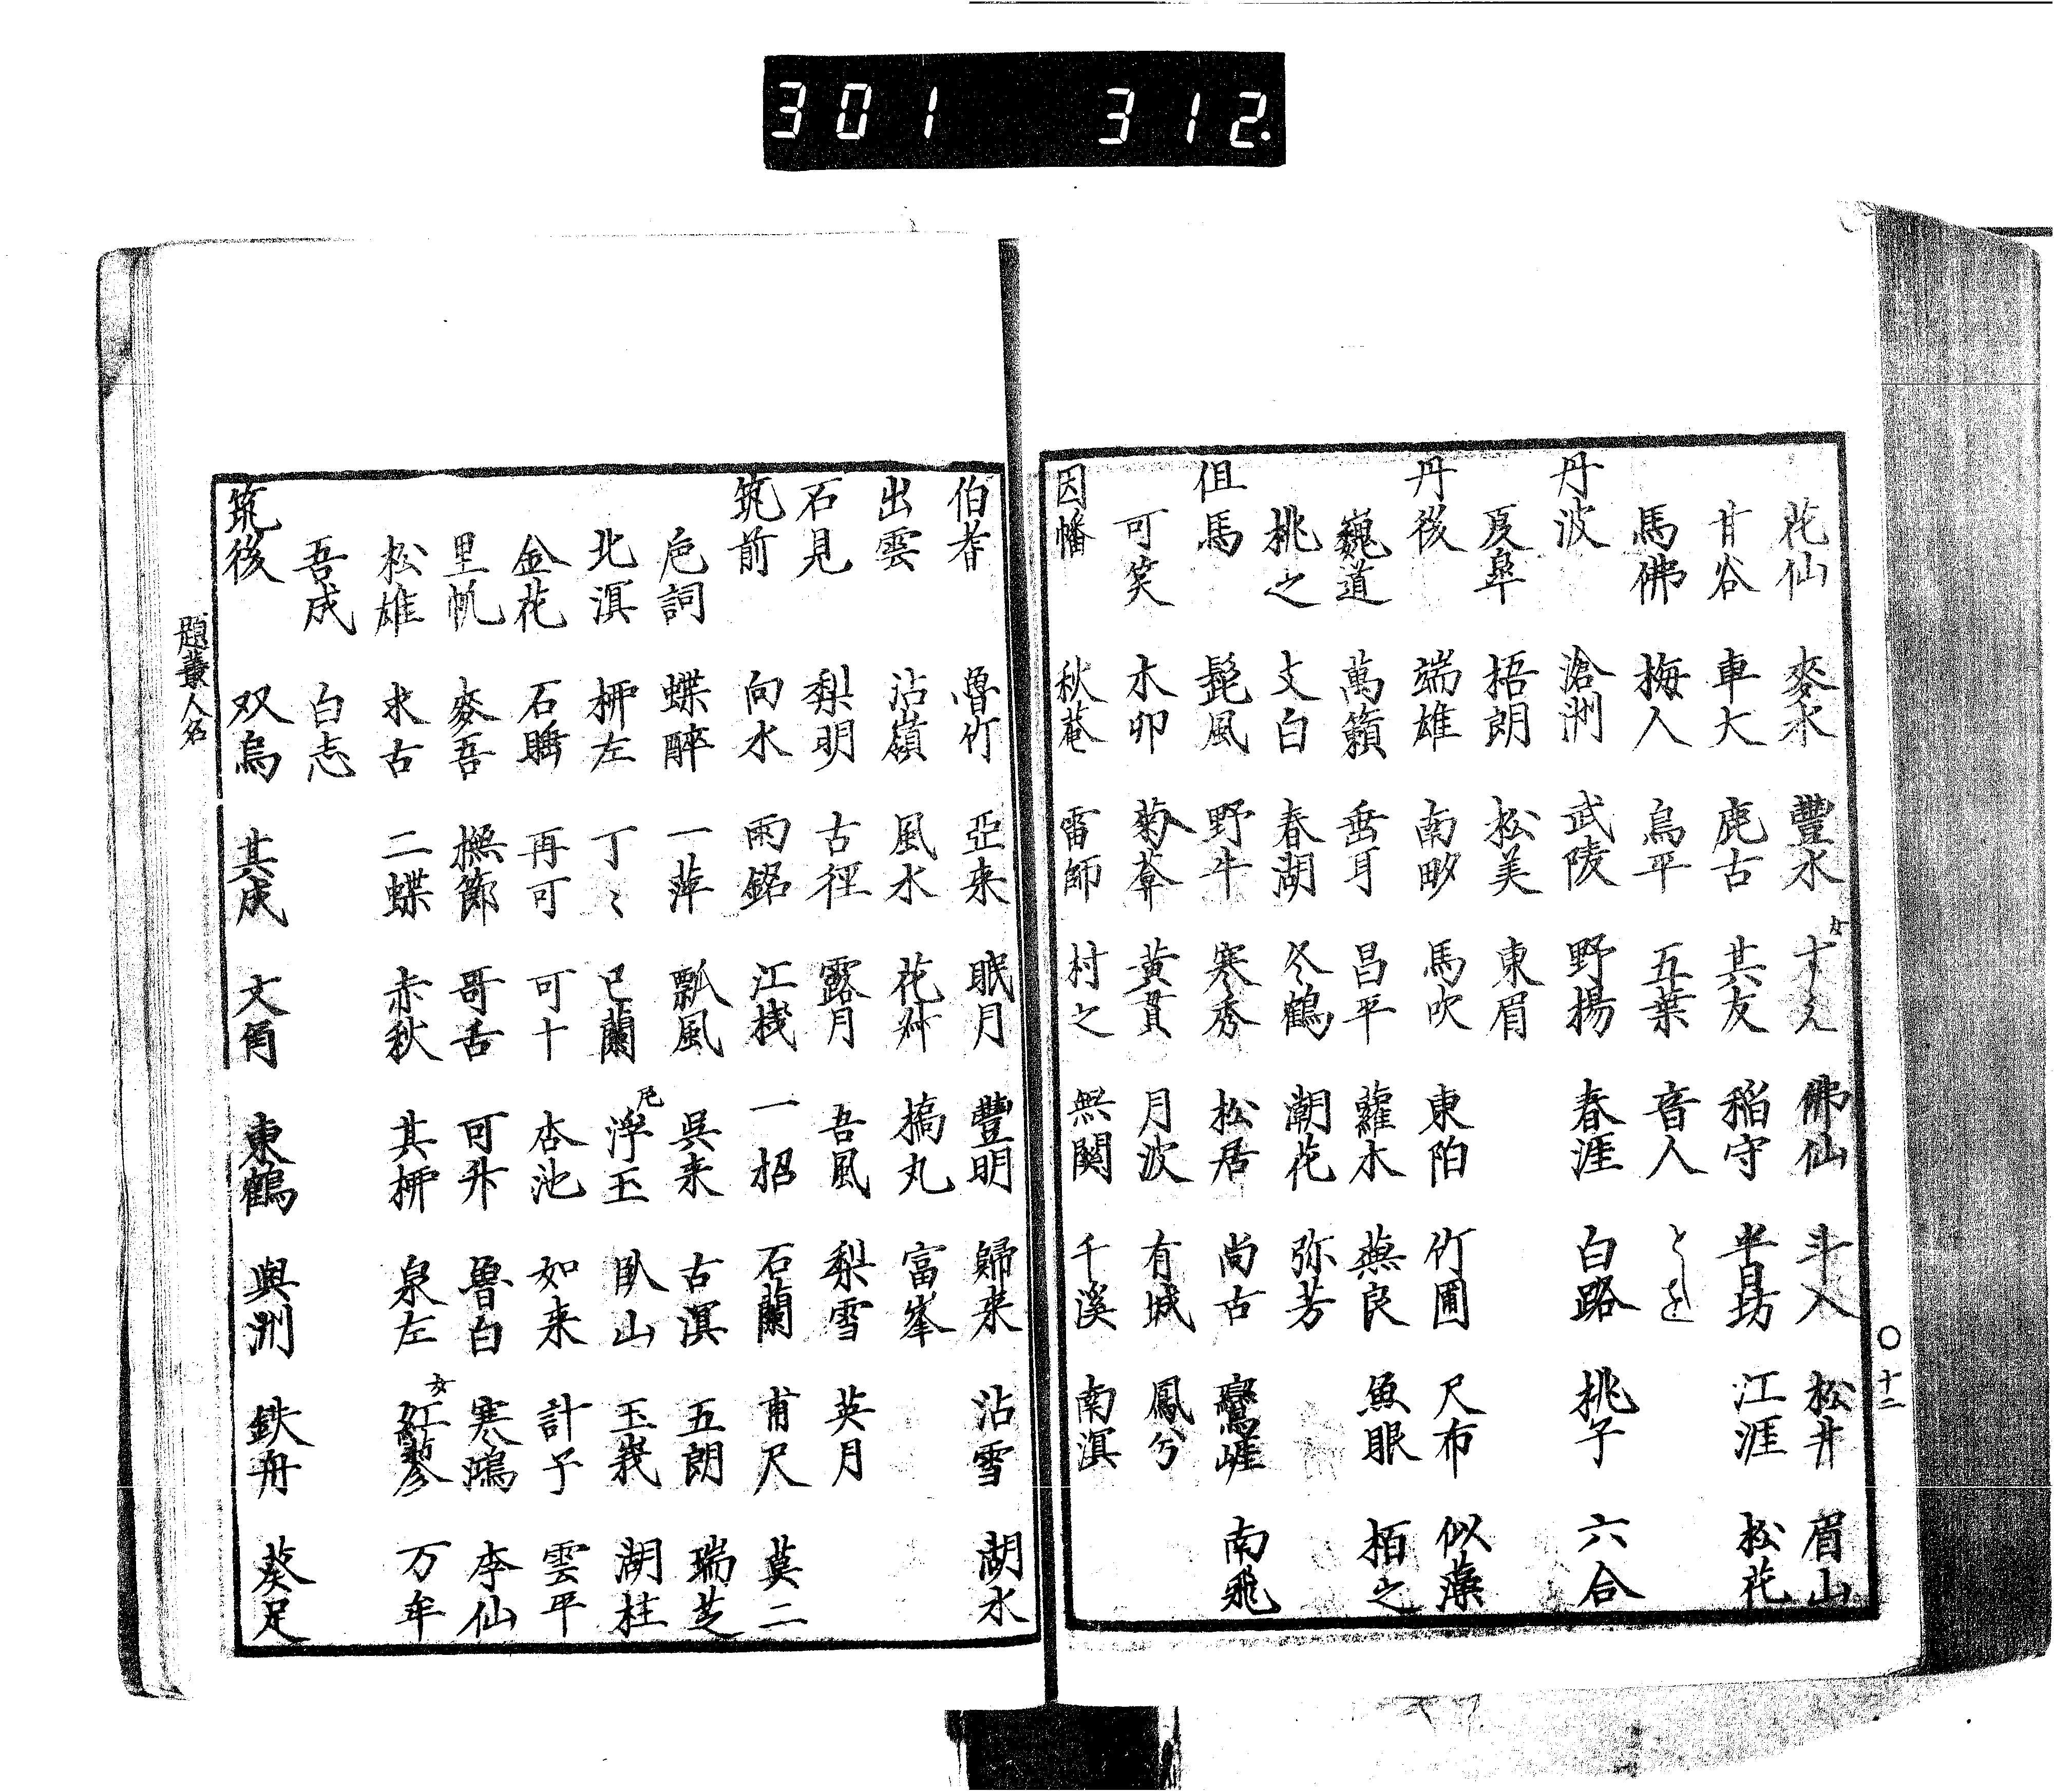 301 312.
花仙 麥水 豐水 女すえ 佛仙 斗入 松井 眉山
甘谷 車大 鹿古 其友 稲守 半昜 江涯 松花
馬佛 梅人 烏平 五葉 音人 とを
丹波 滄洲 武陵 野揚 春涯 白路 桃子 六合
夏皐 梧朗 松美 東眉
丹後 端雄 南畝 馬吹 東陌 竹圃 尺布 似藻
巍道 萬籟 垂耳 昌平 蘿木 蕪良 魚眼 栢之
桃之 文白 春湖 冬鶴 潮花 弥芳
但馬 髭風 野牛 寒秀 松居 尚古 鸞崖 南飛
可笑 木卯 菊莽 黄貫 月波 有城 鳳兮
因幡 秋菴 雷師 村之 無関 千溪 南溟
○十二
伯耆 魯竹 亞来 眠月 豐明 歸来 沾雪 湖水
出雲 沾嶺 風水 花舛 槁丸 富峯
石見 梨明 古徑 露月 吾風 梨雪 英月
筑前 向水 雨銘 江棧 一招 石蘭 甫尺 莫二
巵詞 蝶酔 一萍 瓢風 呉来 古溟 五朗 瑞芝
北溟 柳左 丁〻 已蘭 尼浮玉 臥山 玉峩 湖桂
金花 石瞒 再可 可十 杏池 如来 計子 雲平
里帆 麥吾 撫節 哥舌 可升 魯白 寒鴻 李仙
松雄 求古 二蝶 赤秋 其柳 泉左 女紅蓼 万年
吾成 白志
筑後 双烏 其成 文角 東鶴 與洲 鉄舟 葵足
題叢人名